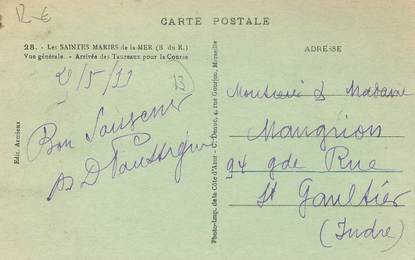 12 €
CARTE POSTALE
28. - Les SAINTES MARIES de la MER (B du R.)
Vue générale. - Arrivée des Taureaux pour la Course
2/5/33
13
Bon Souvenir
Edit. Arnéaux
Photo-Imp. de la Côte d'Azur - C. 4, rue Gourjon, Marseille
ADRESSE
Monsieur & Madame
Maugrion
94 gde Rue
St Gaultier
(Indre)